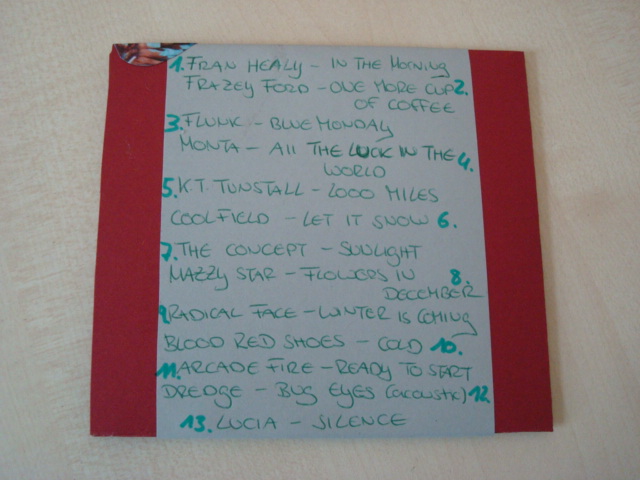 1. FRAN HEALY - IN THE MORNING
FRAZEY FORD - ONE MORE CUP 2.
OF COFFEE
3. FLUNK - BLUE MONDAY
MONTA - All THE LUCK IN THE 4.
WORLD
5. K.T. TUNSTALL - 2000 MILES
COOLFIELD - LET IT SNOW 6.
7. THE CONCEPT - SUNLIGHT
MAZZY STAR - FLOWERS IN 8.
DECEMBER
9. RADICAL FACE - WINTER IS COMING
BLOOD RED SHOES - COLD 10.
11. ARCADE FIRE - READY TO START
DREDGE - BUG EYES (ACOUSTIC) 12.
13. LUCIA - SILENCE